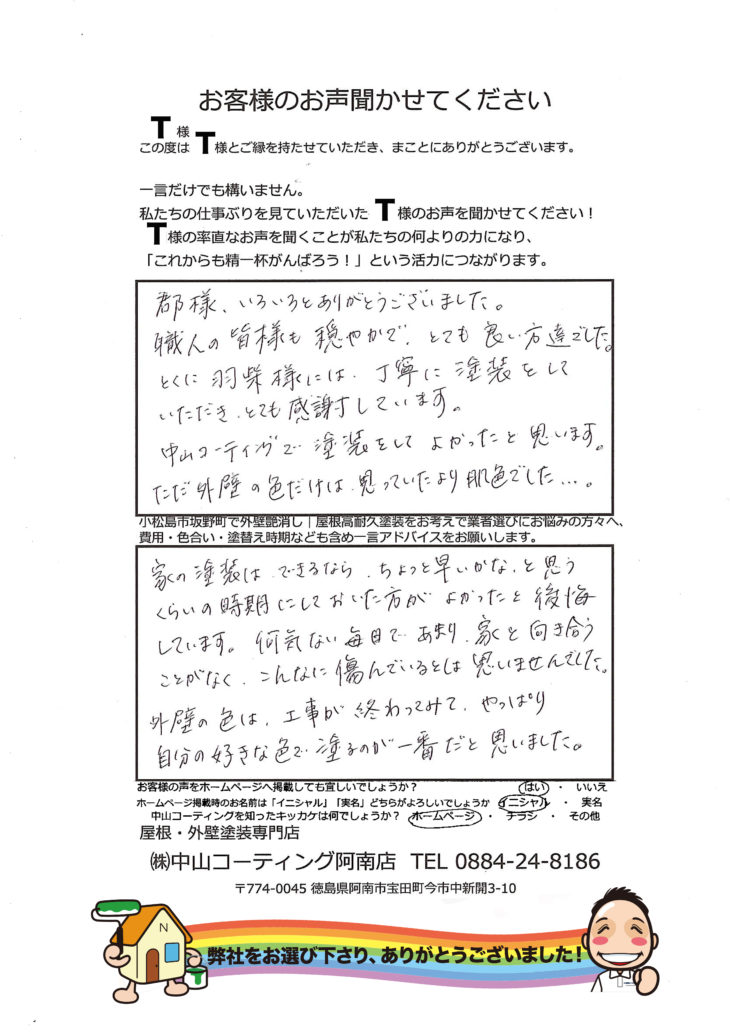 お客様のお声聞かせてください
T 様
この度は T 様とご縁を持たせていただき、まことにありがとうございます。
一言だけでも構いません。
私たちの仕事ぶりを見ていただいた T 様のお声を聞かせてください！
T 様の率直なお声を聞くことが私たちの何よりの力になり、
「これからも精一杯がんばろう！」という活力につながります。
郡様、いろいろとありがとうございました。
職人の皆様も穏やかで、とても良い方達でした。
とくに羽柴様には、丁寧に塗装をして
いただき、とても感謝しています。
中山コーティングで塗装をしてよかったと思います。
ただ外壁の色だけは、思っていたより肌色でした…。
小松島市坂野町で外壁艶消し｜屋根高耐久塗装をお考えで業者選びにお悩みの方々へ、
費用・色合い・塗替え時期なども含め一言アドバイスをお願いします。
家の塗装は、できるなら、ちょっと早いかな、と思う
くらいの時期にしておいた方がよかったと後悔
しています。何気ない毎日で、あまり、家と向き合う
ことがなく、こんなに傷んでいるとは思いませんでした。
外壁の色は、工事が終わってみて、やっぱり
自分の好きな色で塗るのが一番だと思いました。
お客様の声をホームページへ掲載しても宜しいでしょうか？ はい ・ いいえ
ホームページ掲載時のお名前は「イニシャル」「実名」どちらがよろしいでしょうか イニシャル ・ 実名
中山コーティングを知ったキッカケは何でしょうか？ ホームページ ・ チラシ ・ その他
屋根・外壁塗装専門店
㈱中山コーティング阿南店 TEL 0884-24-8186
〒774-0045 徳島県阿南市宝田町今市中新開3-10
N
弊社をお選び下さり、ありがとうございました！